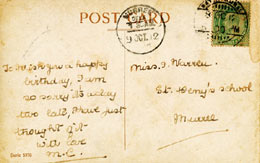 POST CARD
To wish you a happy
birthday, I am
so sorry it's a day
too late, I have just
thought of it
with love
M.C.
Miss. J. Warren
St. Deny's school
Murree